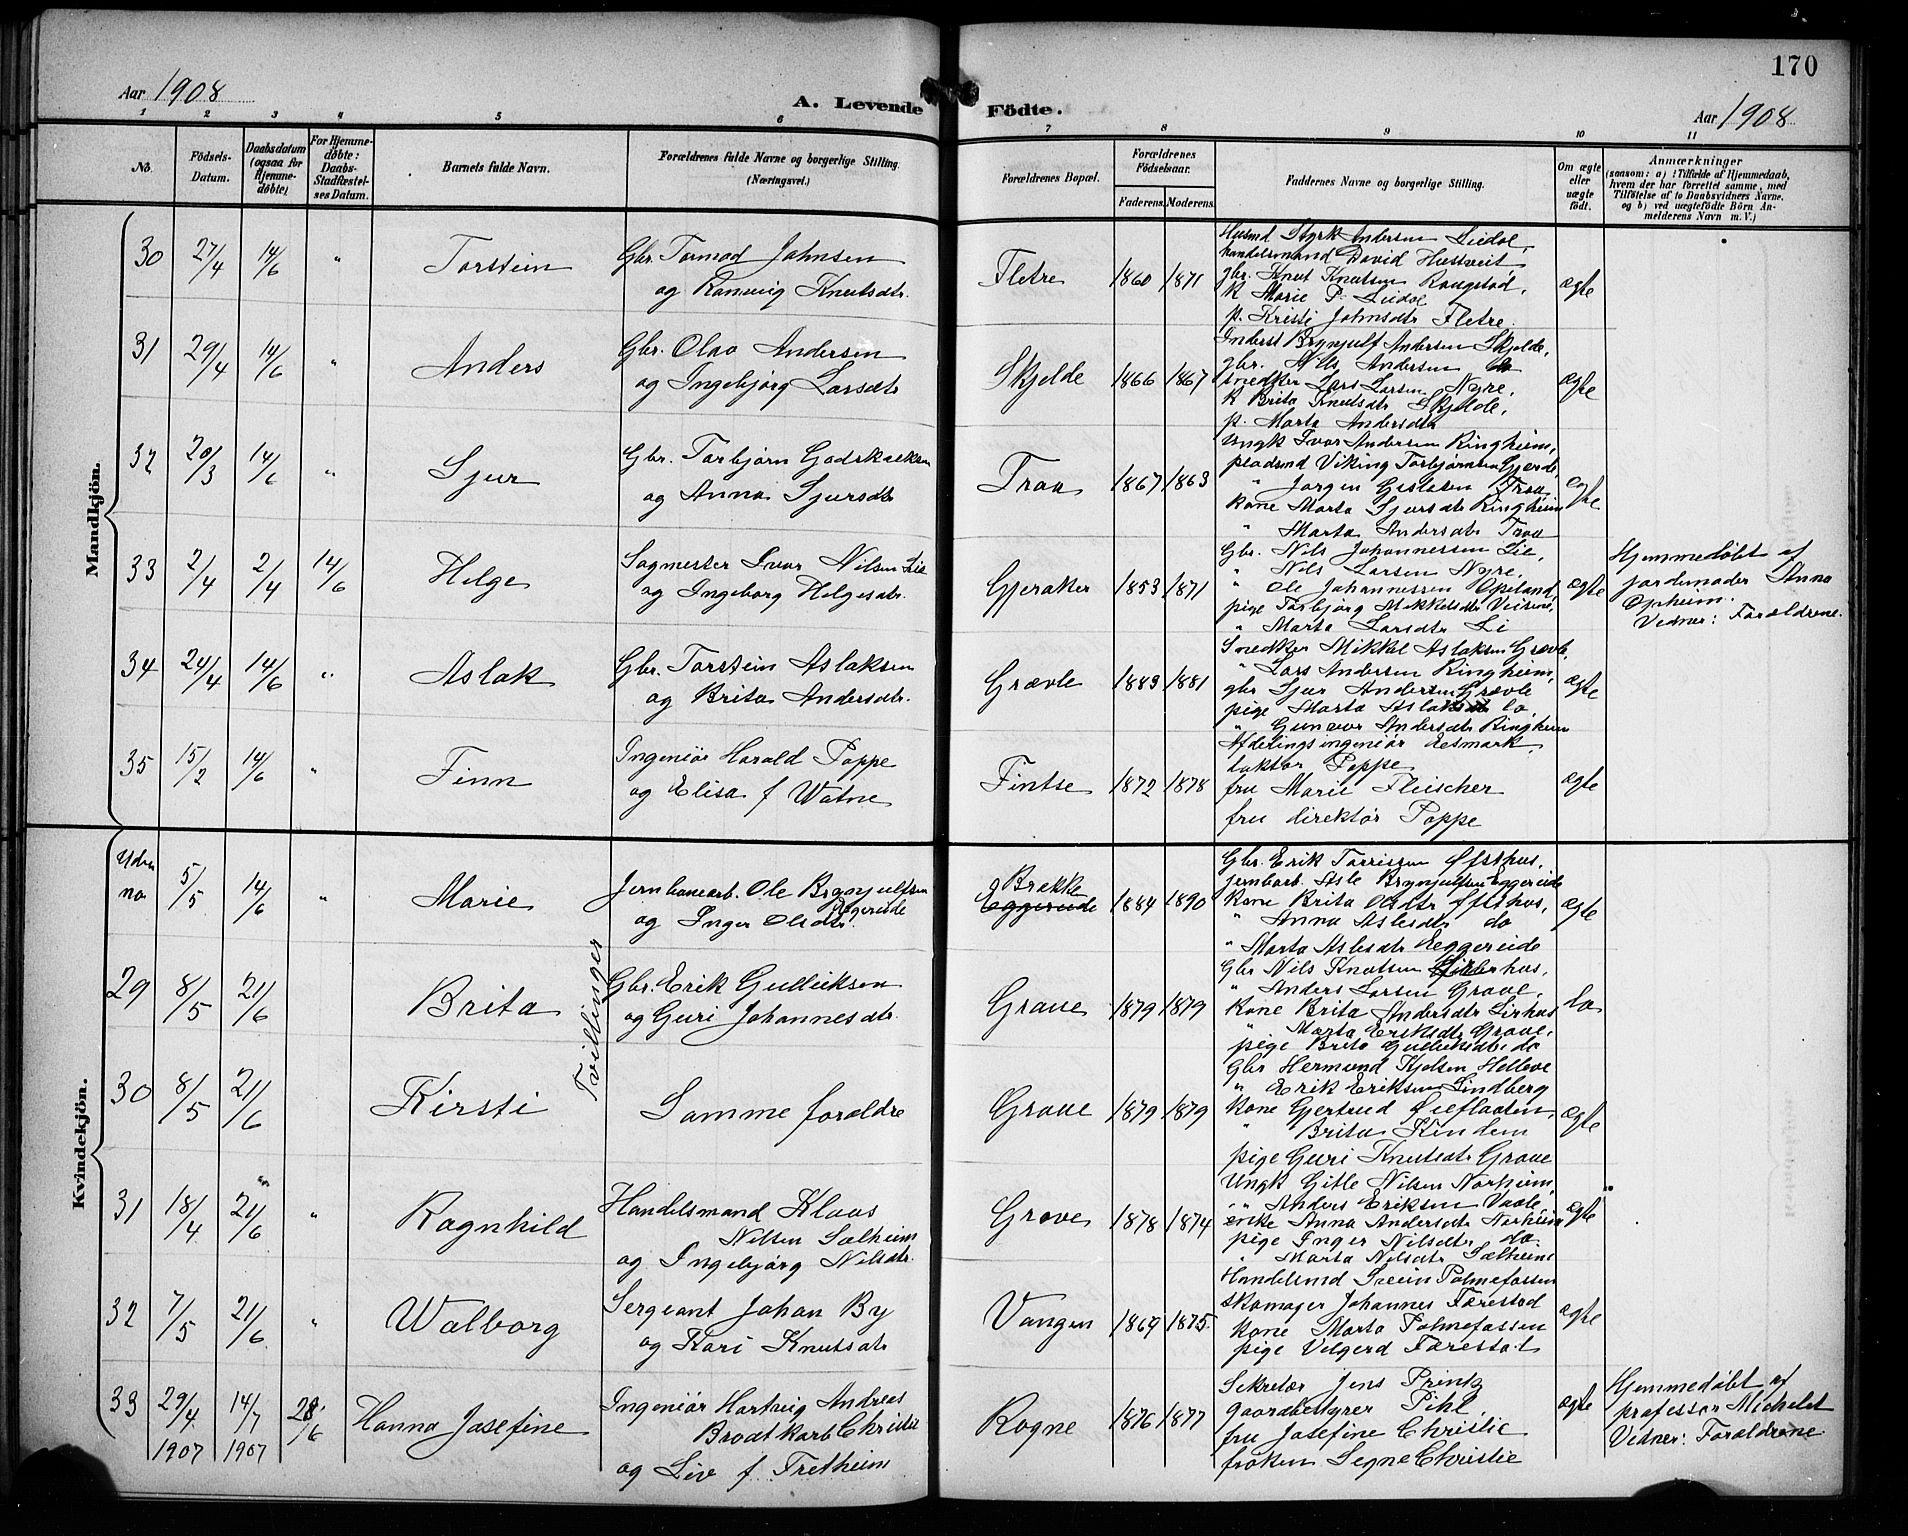 170
Aar 1908
A. Levende Födte.
Aar 1908
1 2 3 4 5 6 7 8 9 10 11
No.
Födsels-Datum.
Daabsdatum (ogsaa for Hjemme-döbte)
For Hjemme-döbte: Daabs-Stadfæstel-ses Datum.
Barnets fulde Navn.
Forældrenes fulde Navne og borgerlige Stilling. (Næringsvei.)
Forældrenes Bopæl.
Forældrenes Födselsaar.
Faderens. Moderens.
Faddernes Navne og borgerlige Stilling.
Om ægte eller uægte födt.
Anmærkninger
(saasom: a) i Tilfælde af Hjemmedaab, hvem der har forrettet samme, med Tilföielse af to Daabsvidners Navne, og b) ved uægtefödte Börn An-melderens Navn m. V.)
Mandkjön.
30 27/4 14/6 " Torstein
Gbr. Tormod Johnsen
og Ranveig Knutsdtr.
Fletre 1860 1871
Husmd Styrk Andersen Liedol,
handelsmand David Hustveit
gbr. Knut Knutsen Rongstad,
K Marie P. Liedol
p. Kristi Johnsdtr Fletre.
ægte
31 29/4 14/6 " Anders
Gbr. Olav Andersen
og Ingebjørg Larsdtr
Skjelde 1866 1867
Inderst Brynjulf Andersen Skjelde,
gbr. Nils Andersen do
snedker Lars Larsen Nyre,
K Brita Knutsdtr Skjelde,
p. Marta Andersdtr
ægte
32 20/3 14/6 " Sjur
Gbr. Torbjørn Godskalksen
og Anna Sjursdtr
Traa 1867 1863
Ungk Ivar Andersen Ringheim,
pladsmd Viking Torbjørnsen Gjerde,
" Jørgen Gislesen Traa,
kone Marta Sjursdtr Ringheim
" Marta Andersdtr Traa
ægte
33 2/4 2/4 14/6 Helge
Sagmester Ivar Nilsen Lie
og Ingeborg Helgesdtr.
Gjeraker 1853 1871
Gbr. Nils Johannessen Lie,
" Nils Larsen Nyre,
" Ole Johannessen Opeland,
pige Torbjørg Mikkelsdtr
" Marta Larsdtr Li
ægte
Hjemmedøbt af
jordemoder Anna
Opheim.
Vidner: Forældrene.
34 24/4 14/6 " Aslak
Gbr. Torstein Aslaksen
og Brita Andersdtr.
Grævle 1883 1881
Snedker Mikkel Aslaksen Grævle,
" Lars Andersen Ringheim,
gbr Sjur Andersen Grævle
pige Marta Aslaksdtr do
" Gunvor Andersdtr Ringheim
ægte
35 15/2 14/6 " Finn
Ingeniør Harald Poppe
og Elisa f Watne
Fintse 1872 1878
Afdelingsingeniør Eesmark,
doktor Poppe
fru Marie Fleischer
fru direktør Poppe
ægte
Kvindekjön.
Uden no 5/5 14/6 " Marie
Jernbanearb. Ole Brynjulfsen
Eggereide
og Inger Olsdtr.
Brekke
Eggereide 1884 1890
Gbr. Erik Torrissen Øfsthus,
jernbarb. Asle Brynjulfsen Eggereide
kone Brita Olsdtr Øfsthus,
" Anna Aslesdtr do
" Marta Aslesdtr Eggereide
ægte
Tvillinger
29 8/5 21/6 Brita
Gbr. Erik Gulleiksen
og Guri Johannesdtr.
Graue 1879 1879
Gbr Nils Knutsen Lirhus,
" Anders Larsen Grave,
kone Brita Andersdtr Lirhus
" Marta Eriksdtr Graue,
pige Brita Gulleiksdtr do
do
30 8/5 21/6 Kirsti
Samme forældre
Graue 1879 1879
Gbr Hermund Kjelsen Helleve
" Erik Eriksen Lindberg
kone Gjertrud
" Brita Kindem
pige Guri Knutsdtr Graue
ægte
31 18/4 21/6 " Ragnhild
Handelsmand Klaas
Nilsen Sælheim
og Ingebjørg Nilsdtr.
Grove 1878 1874
Ungk Gitle Nilsen Norheim,
" Anders Eriksen Væle,
enke Anna Andersdtr Norheim
pige Inger Nilsdtr do
" Marta Nilsdtr Sælheim
ægte
32 7/5 21/6 " Walborg
Sergeant Johan By
og Kari Knutsdtr
Vangen 1869 1875
Handelsmd Svein Palmefossen
skomager Johannes Færestad
kone Marta Palmefossen
pige Velgerd Færestad
ægte
33 29/4 1907 14/7 1907 28/6 Hanna Josefine
Ingeniør Hartvig Andreas
Brodtkorb Christie
og Liv f. Fretheim
Rogne 1876 1877
Sekretær Jens Printz
gaardbestyrer Pihl,
fru Josefine Christie
frøken Signe Christie
ægte
Hjemmedøbt af
professor Michelet
Vidner: Forældrene